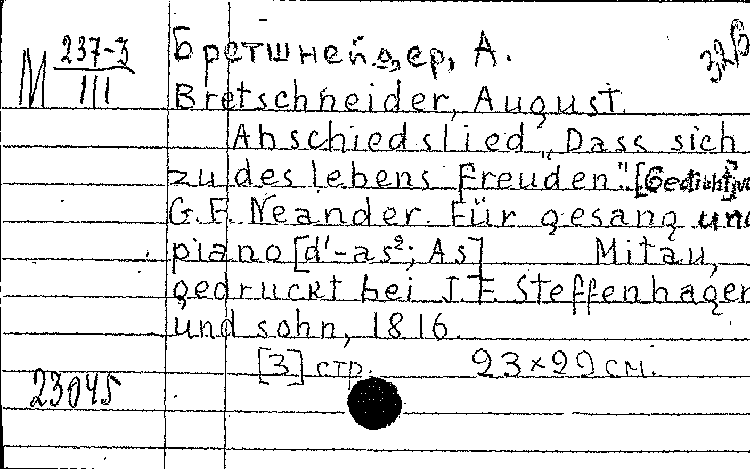 М 237-3
III
Бретшнейдер, А.
32В
Bretschneider, August.
Abschiedslied „Dass sich
zu des lebens Freuden". [Gedicht] vo
G. F. Neander. Für gesang und
piano [d'-as²; As] Mitau,
gedruckt bei J. F. Steffenhagen
und sohn, 1816.
[3] стр. 23×29 см.
23045